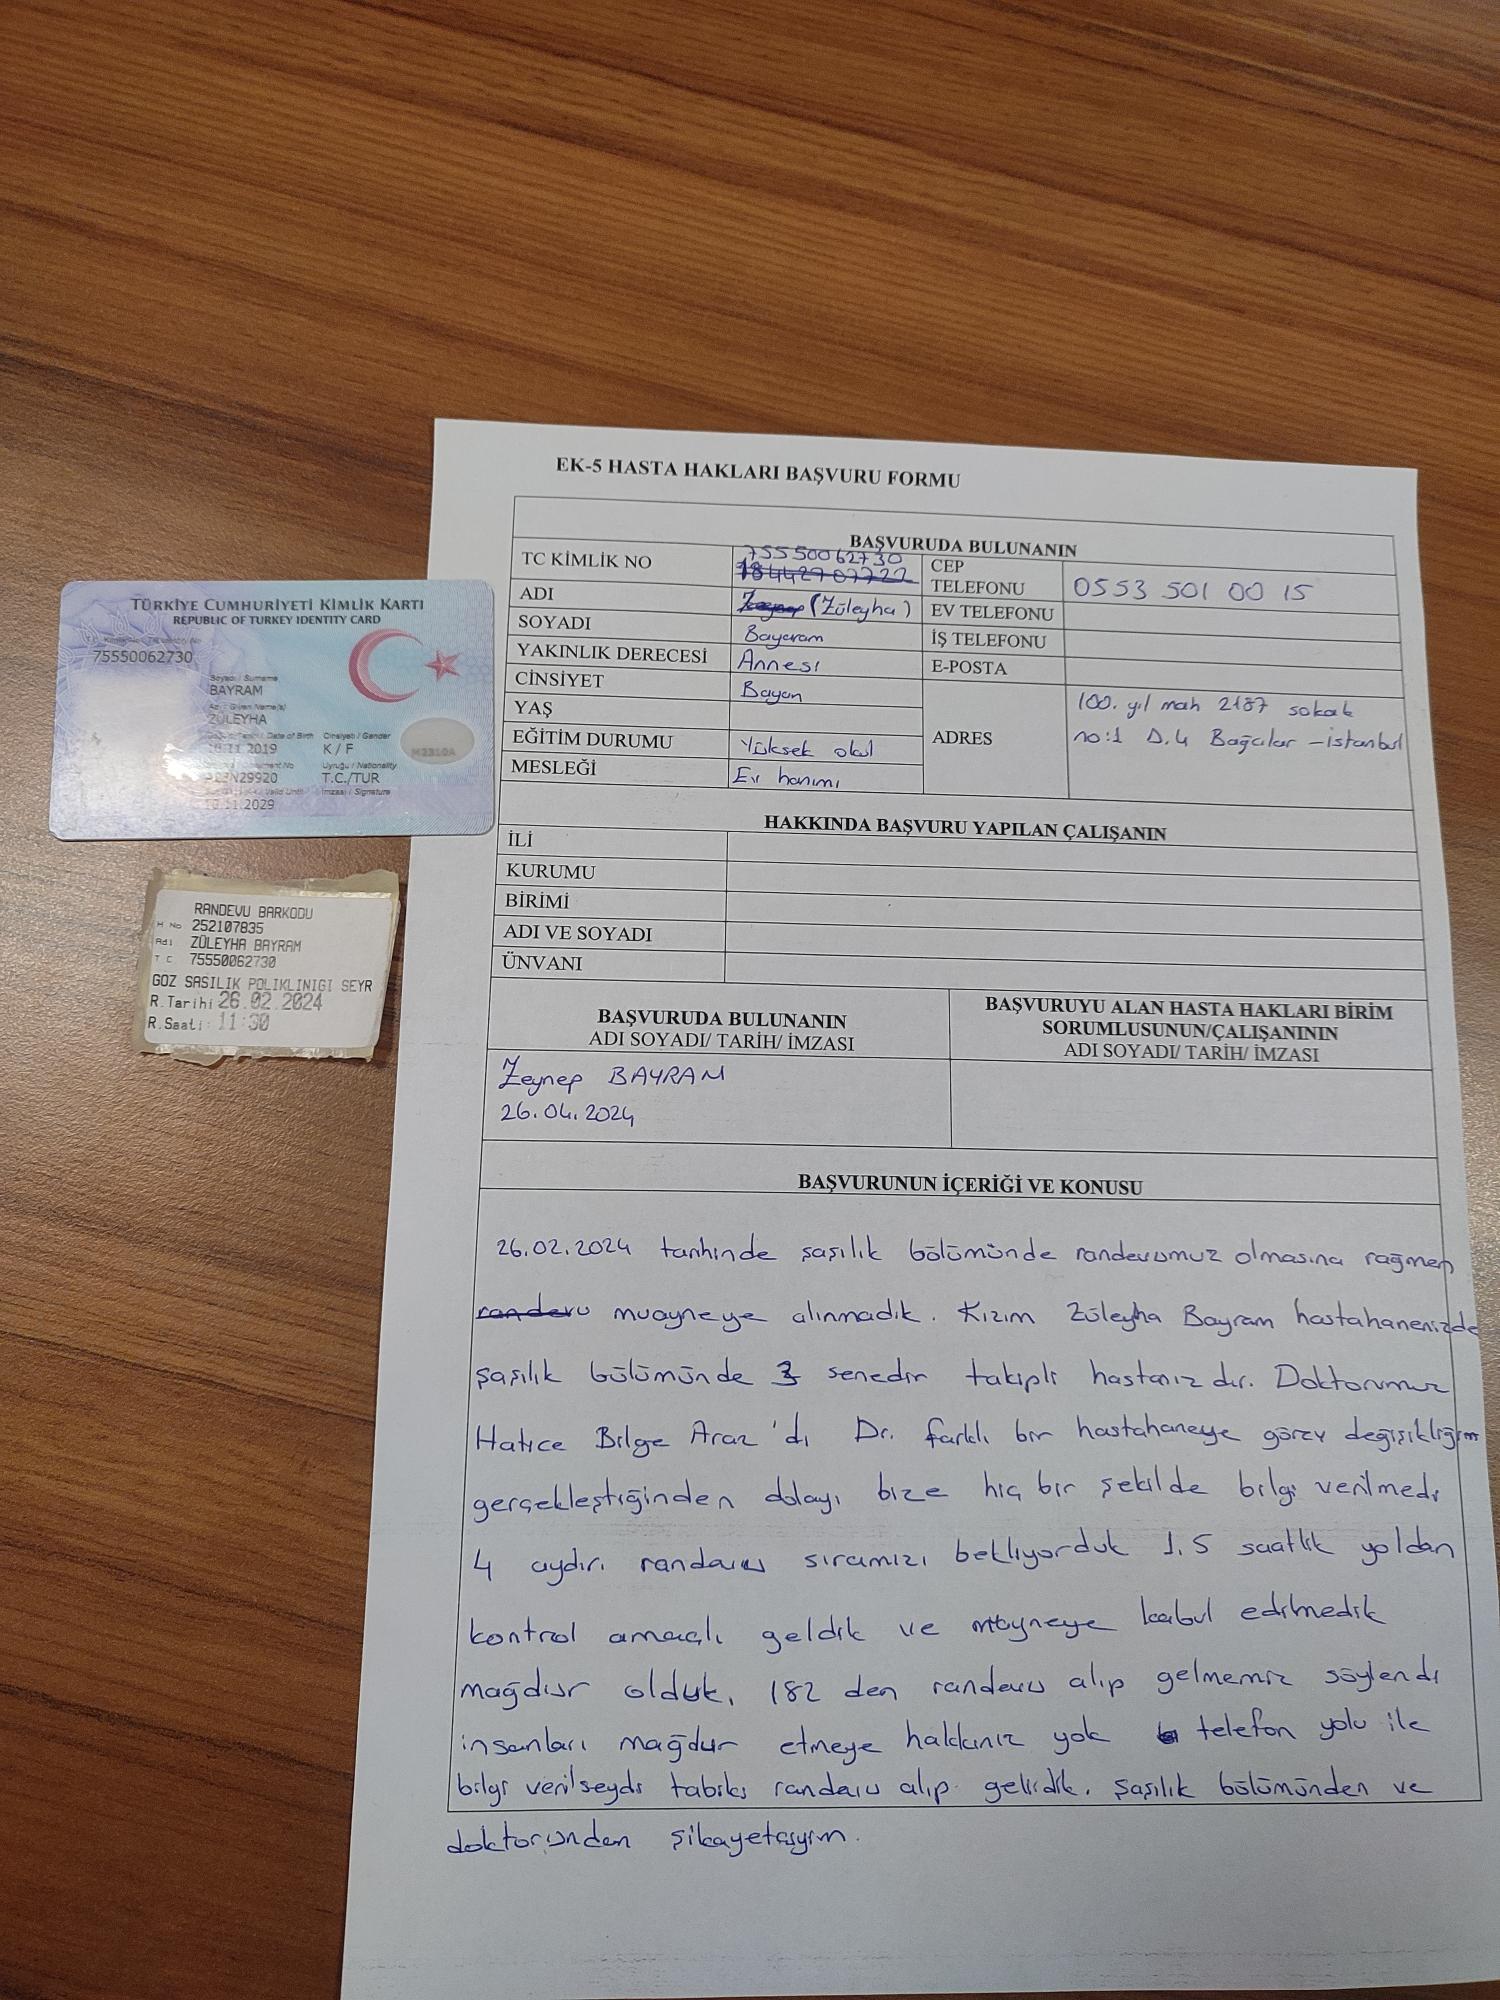 EK-5 HASTA HAKLARI BAŞVURU FORMU
BAŞVURUDA BULUNANIN
TC KİMLİK NO 75550062730
CEP TELEFONU 0553 501 00 15
ADI (Züleyha)
EV TELEFONU
SOYADI Bayram
İŞ TELEFONU
YAKINLIK DERECESİ Annesi
E-POSTA
CİNSİYET Bayan
YAŞ
ADRES 100. yıl mah 2187 sokak
no:1 D.4 Bağcılar - istanbul
EĞİTİM DURUMU Yüksek okul
MESLEĞİ Ev hanımı
HAKKINDA BAŞVURU YAPILAN ÇALIŞANIN
İLİ
KURUMU
BİRİMİ
ADI VE SOYADI
ÜNVANI
BAŞVURUDA BULUNANIN
ADI SOYADI/ TARİH/ İMZASI
BAŞVURUYU ALAN HASTA HAKLARI BİRİM
SORUMLUSUNUN/ÇALIŞANININ
ADI SOYADI/ TARİH/ İMZASI
Zeynep BAYRAM
26.04.2024
BAŞVURUNUN İÇERİĞİ VE KONUSU
26.02.2024 tarihinde şaşılık bölümünde randevumuz olmasına rağmen
randevu muayneye alınmadık. Kızım Züleyha Bayram hastahanenizde
şaşılık bölümünde 3 senedir takipli hastanızdır. Doktorumuz
Hatice Bilge Araz'dı Dr. farklı bir hastahaneye görev değişikliğin
gerçekleştiğinden dolayı bize hiç bir şekilde bilgi verilmedi
4 aydır randevu sıramızı bekliyorduk 1,5 saatlik yoldan
kontrol amaçlı geldik ve muayneye kabul edilmedik
mağdur olduk. 182 den randevu alıp gelmemiz söylendi
insanları mağdur etmeye hakkınız yok telefon yolu ile
bilgi verilseydi tabiki randevu alıp gelirdik. Şaşılık bölümünden ve
doktorundan şikayetçiyim.
TÜRKİYE CUMHURİYETİ KİMLİK KARTI
REPUBLIC OF TURKEY IDENTITY CARD
75550062730
Soyadı / Surname
BAYRAM
Adı / Given Name(s)
ZÜLEYHA
Date of Birth Cinsiyeti / Gender
11 2019 K / F
Document No Uyruğu / Nationality
N29920 T.C./TUR
Valid Until İmzası / Signature
11.2029
RANDEVU BARKODU
H No 252107835
Adı ZÜLEYHA BAYRAM
T C 75550062730
GOZ SASILIK POLIKLINIGI SEYR
R.Tarihi 26.02.2024
R.Saati: 11:30